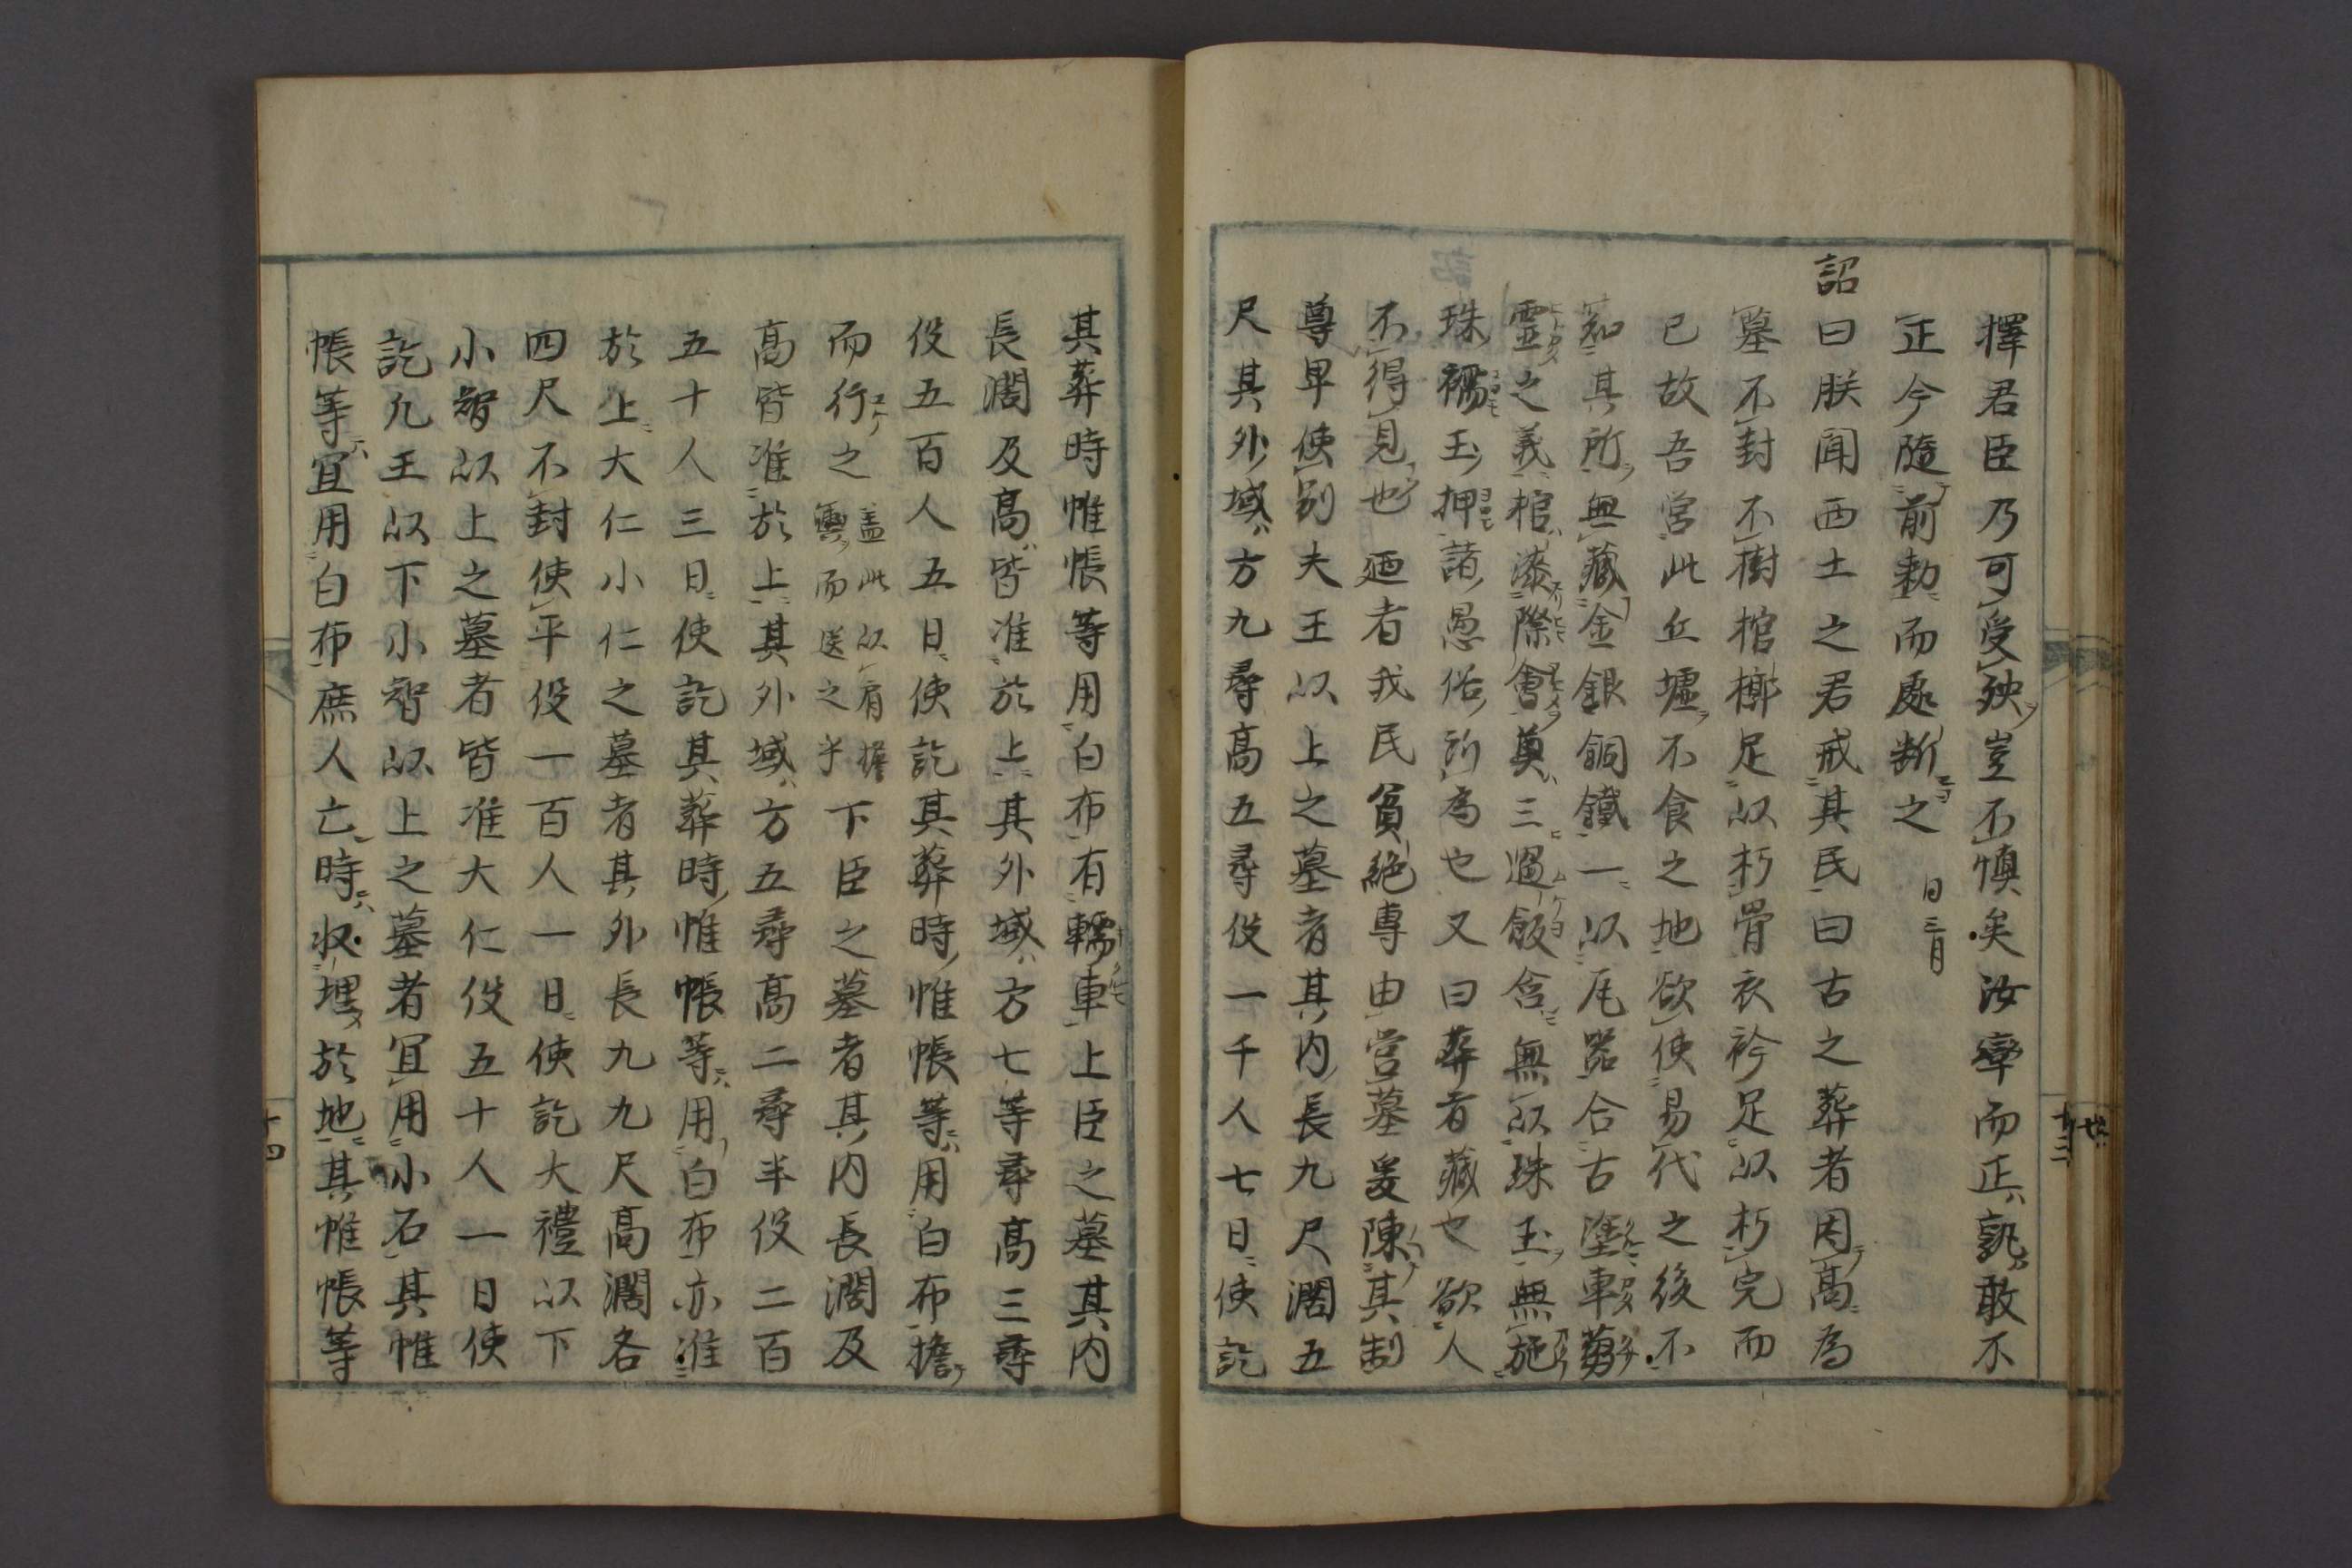 擇君臣乃可受殃豈不慎矣汝率而正孰敢不
正今隨前勅而處断之 日三月
詔曰朕聞西土之君戒其民曰古之葬者因高為
墓不封不樹棺槨足以朽骨衣衿足以朽完而
已故吾営此丘墟不食之地欲使易代之後不
知其所無藏金銀銅鐵一以瓦器合古塗車蒭
霊之義棺漆際會奠三過飯含無以珠玉無施
珠襦玉押諸愚俗所為也又曰葬者藏也欲人
不得見也廼者我民貧絶專由営墓爰陳其制
尊卑使別夫王以上之墓者其内長九尺濶五
尺其外域方九尋高五尋伇一千人七日使訖
其葬時帷帳等用白布有轜車上臣之墓其内
長濶及高皆准於上其外域方七等尋高三尋
伇五百人五日使訖其葬時帷帳等用白布擔
而行之 盖此以肩擔
輿而送之乎 下臣之墓者其内長濶及
高皆准於上其外域方五尋高二尋半伇二百
五十人三日使訖其葬時帷帳等用白布亦准
於上大仁小仁之墓者其外長九九尺高濶各
四尺不封使平伇一百人一日使訖大禮以下
小智以上之墓者皆准大仁伇五十人一日使
訖凢王以下小智以上之墓者冝用小石其帷
帳等冝用白布庶人亡時収埋於地其帷帳等
十三
十四